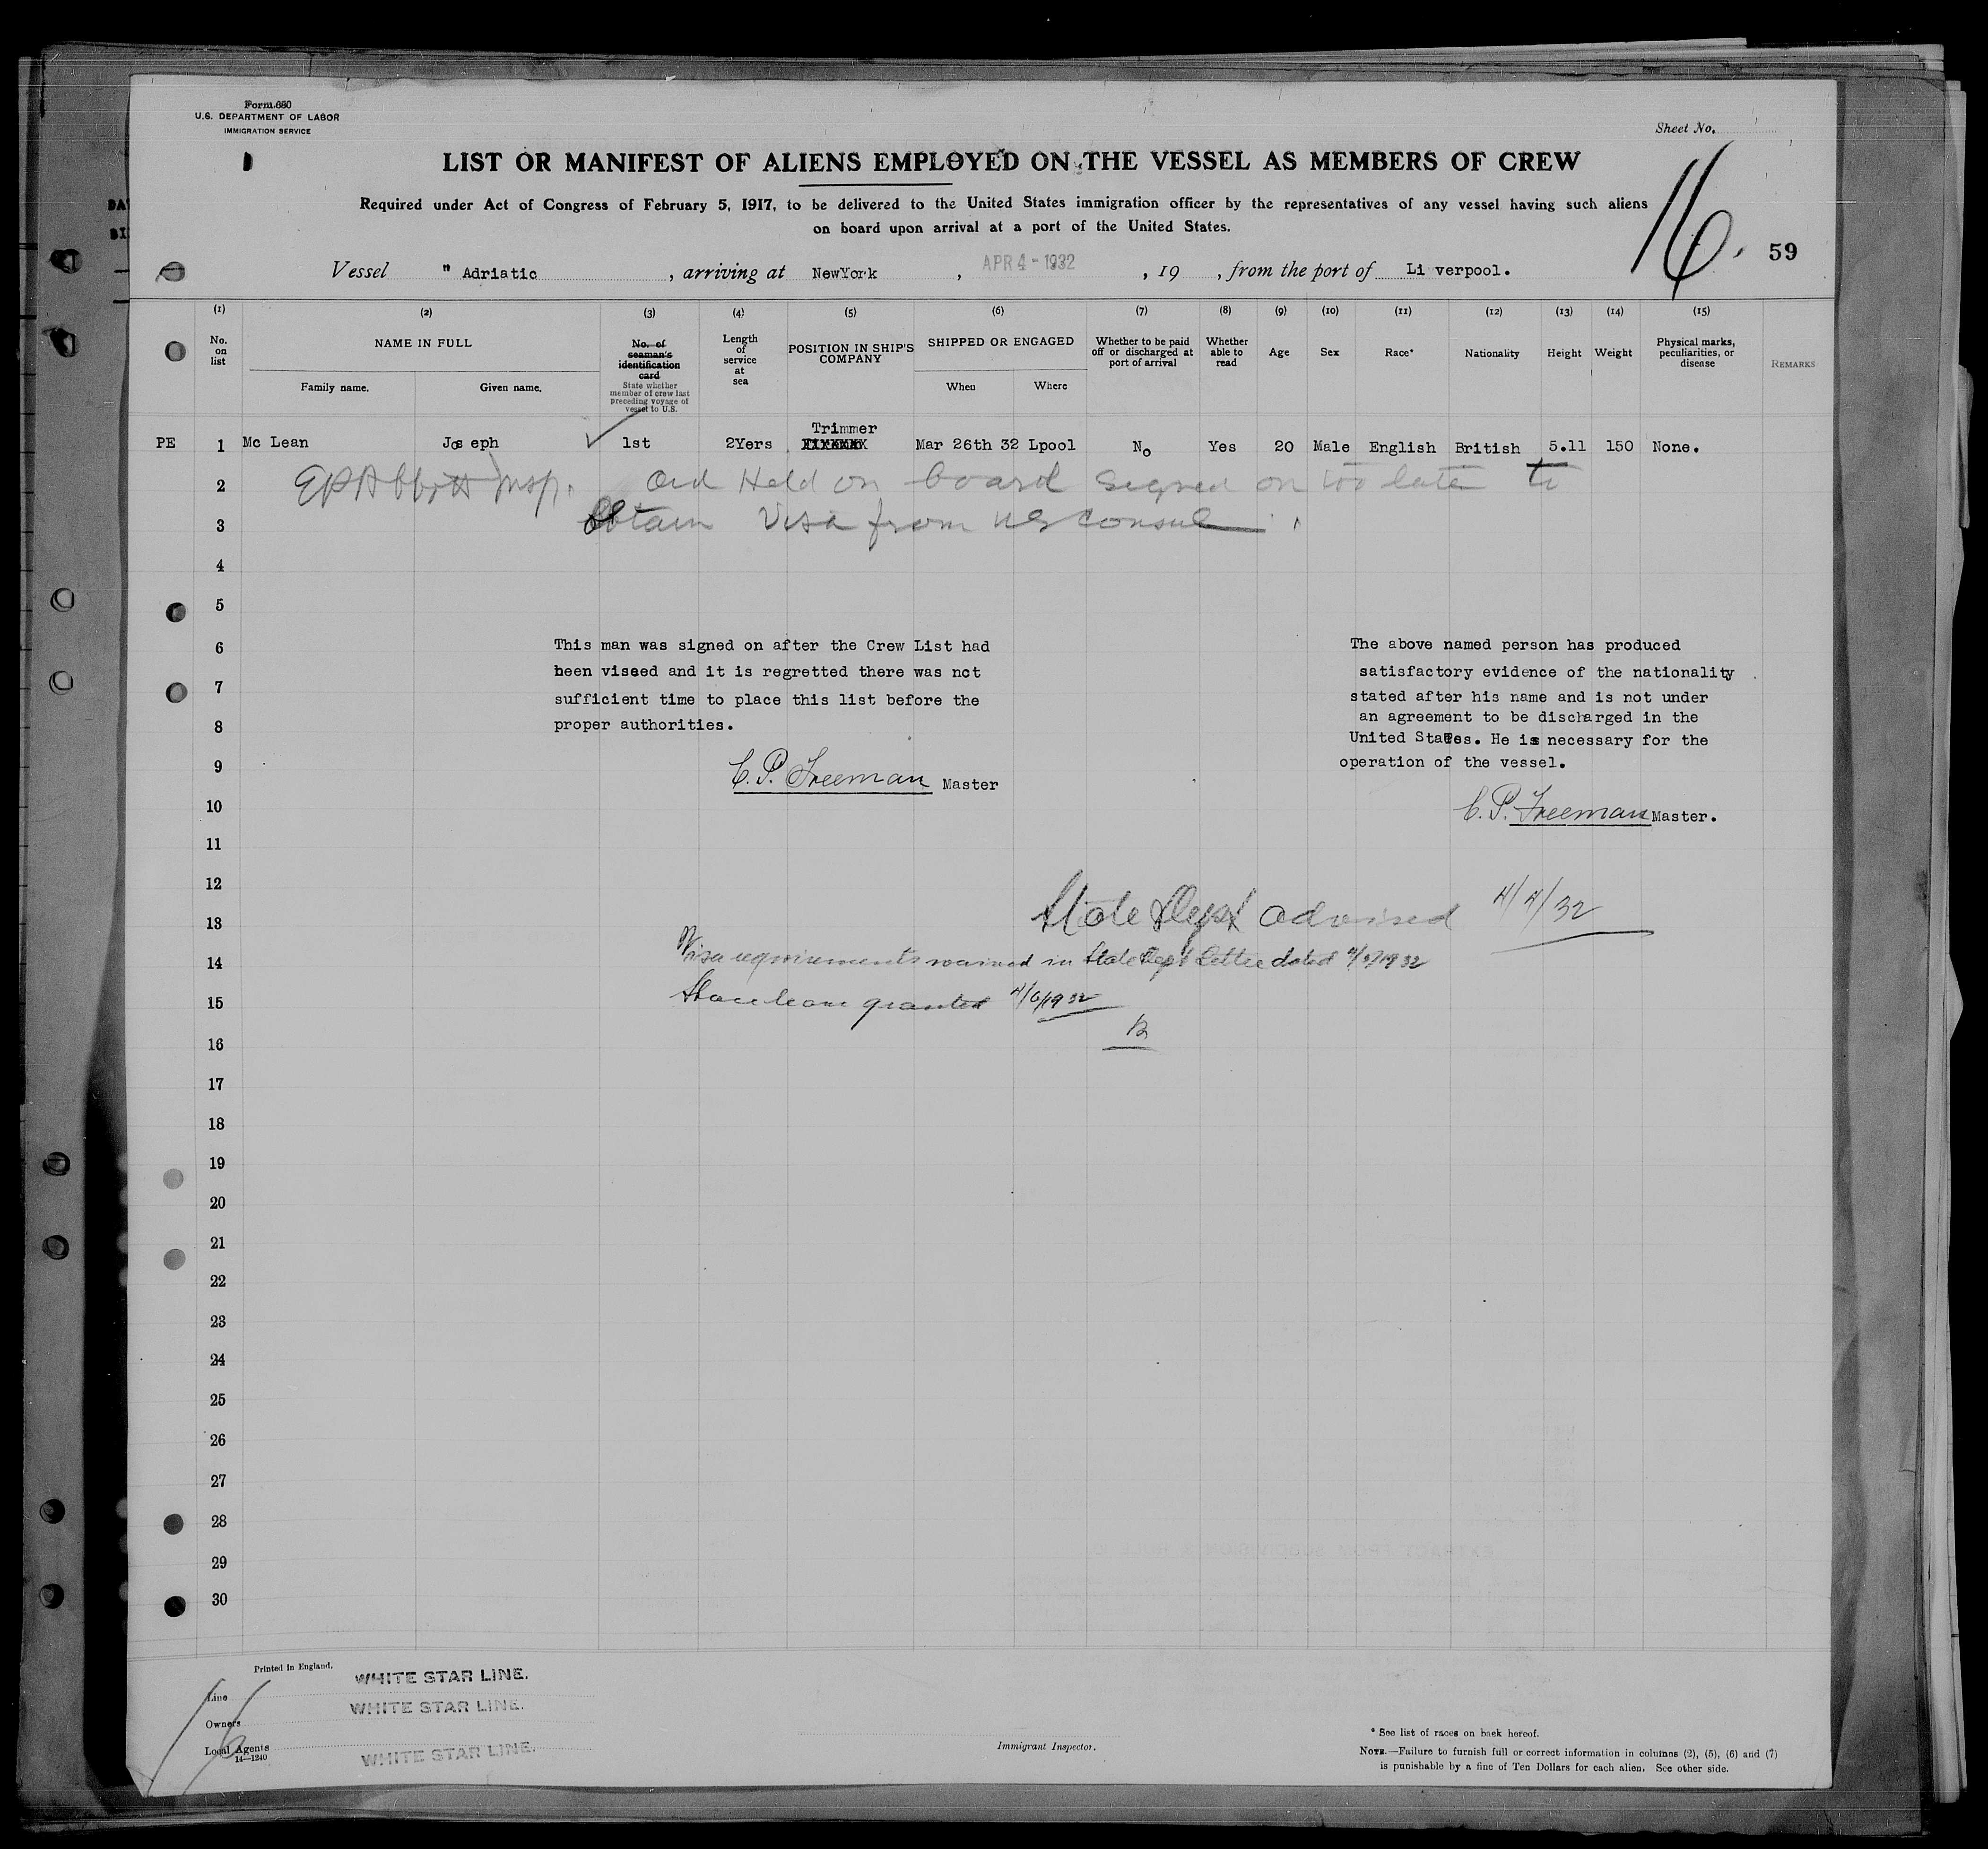 Form 680
U.S. DEPARTMENT OF LABOR
IMMIGRATION SERVICE
Sheet No.
LIST OR MANIFEST OF ALIENS EMPLOYED ON THE VESSEL AS MEMBERS OF CREW
Required under Act of Congress of February 5, 1917, to be delivered to the United States immigration officer by the representatives of any vessel having such aliens
on board upon arrival at a port of the United States.
16.
59
Vessel " Adriatic , arriving at NewYork , APR 4 - 1932 , 19 , from the port of Li verpool.
(1) (2) (3) (4) (5) (6) (7) (8) (9) (10) (11) (12) (13) (14) (15)
No. on list
NAME IN FULL
Family name. Given name.
No. of seaman's identification card
State whether member of crew last preceding voyage of vessel to U.S.
Length of service at sea
POSITION IN SHIP'S COMPANY
SHIPPED OR ENGAGED
When Where
Whether to be paid off or discharged at port of arrival
Whether able to read
Age
Sex
Race*
Nationality
Height
Weight
Physical marks, peculiarities, or disease
REMARKS
Trimmer
PE 1 Mc Lean Jos eph 1st 2Yers Mar 26th 32 Lpool No Yes 20 Male English British 5.11 150 None.
2 EP Abbott Insp. Ord Held on board signed on too late to
3 obtain visa from US Consul
4
5
6
7
8
9
10
11
12
13
14
15
16
17
18
19
20
21
22
23
24
25
26
27
28
29
30
This man was signed on after the Crew List had
been viseed and it is regretted there was not
sufficient time to place this list before the
proper authorities.
C. P. Freeman Master
The above named person has produced
satisfactory evidence of the nationality
stated after his name and is not under
an agreement to be discharged in the
United States. He is necessary for the
operation of the vessel.
C. P. Freeman Master.
State Dept advised 4/4/32
Visa requirements waived in State Dept letter dated
Shore leave granted 4/6/1932
Printed in England.
Line WHITE STAR LINE.
Owners WHITE STAR LINE.
Local Agents WHITE STAR LINE.
14—1240
16
Immigrant Inspector.
* See list of races on back hereof.
NOTE.—Failure to furnish full or correct information in columns (2), (5), (6) and (7)
is punishable by a fine of Ten Dollars for each alien. See other side.